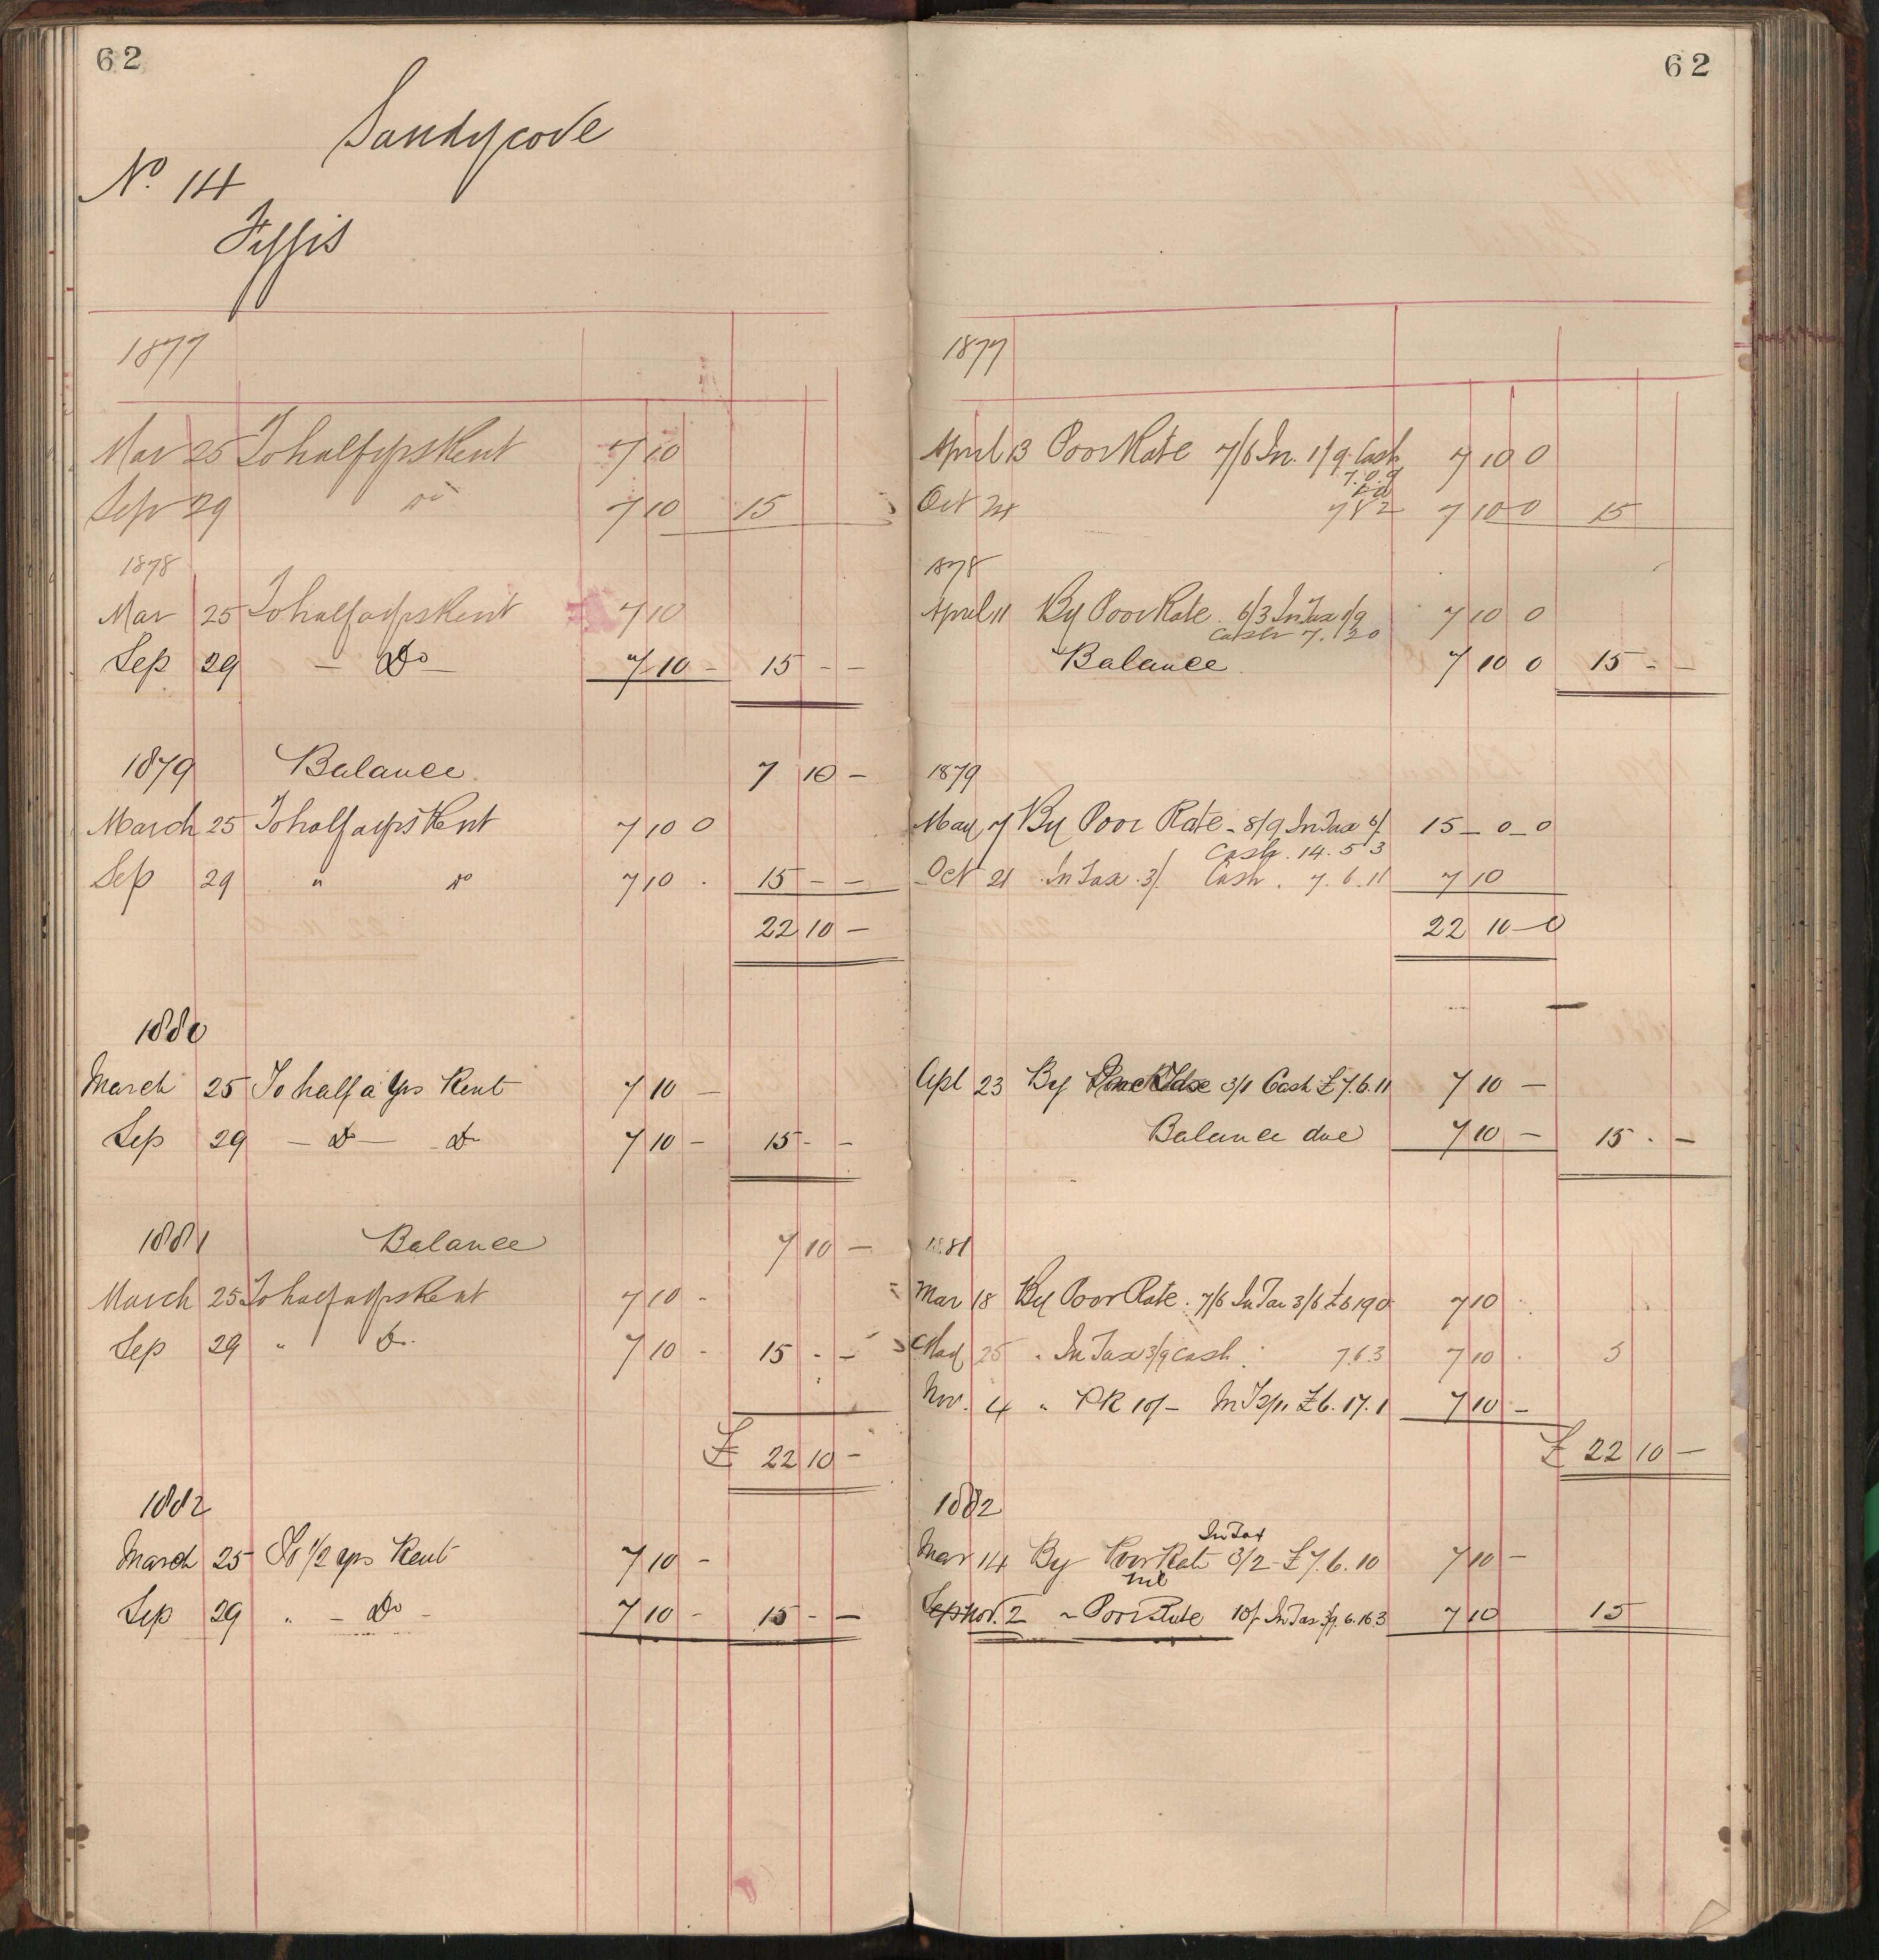 62
Sandycove
No. 14
1877
Mar 25 To half yrs Rent 7 10
Sep 29 do 7 10 15
1878
Mar 25 To half a yrs Rent 7 10
Sep 29 — Do — 7 10 - 15 - -
1879 Balance 7 10 -
March 25 To half a yrs Rent 7 10 0
Sep 29 " do 7 10 . 15 - -
22 10 -
1880
March 25 To half a yrs Rent 7 10 -
Sep 29 — Do — Do 7 10 - 15 - -
1881 Balance 7 10 -
March 25 To half a yrs Rent 7 10 -
Sep 29 " Do. 7 10 - 15 - -
£ 22 10 -
1882
March 25 To 1/2 yrs Rent 7 10 -
Sep 29 " - Do - 7 10 - 15 - -
62
1877
April 13 Poor Rate 7/6 In. 1/9 Cash 7 10 0
7.0.9
Oct 24 7 10 0 15
1878
April 11 By Poor Rate. 6/3 In Tax 1/9 7 10 0
Cash 7. 2 0
Balance 7 10 0 15 - -
1879
May 7 By Poor Rate - 8/9 In Tax 6/ 15 - 0 - 0
Cash. 14. 5 3
Oct 21 In Tax. 3/1 Cash. 7. 6. 11 7 10
22 10 - 0
1880
Apl 23 By Tax 3/1 Cash £7.6.11 7 10 -
Balance due 7 10 - 15 - -
1881
Mar 18 By Poor Rate. 7/6 In Tax 3/6 £6 19 0 7 10
May 25 " In Tax 3/9 Cash 7.6.3 7 10 . 5
Nov. 4 " P R 10/- In T 2/11 £6. 17. 1 7 10 -
£ 22 10 -
1882
In Tax
Mar 14 By Poor Rate 3/2 - £7.6.10 7 10 -
nil
Sep Nov. 2 " Poor Rate 10/- In Tax 3/9 6.16.3 7 10 15